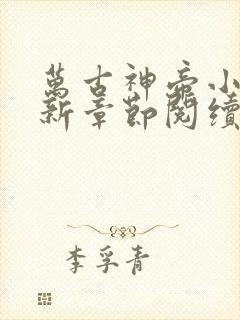 萬古神帝小
新章節閱讀
李孚青